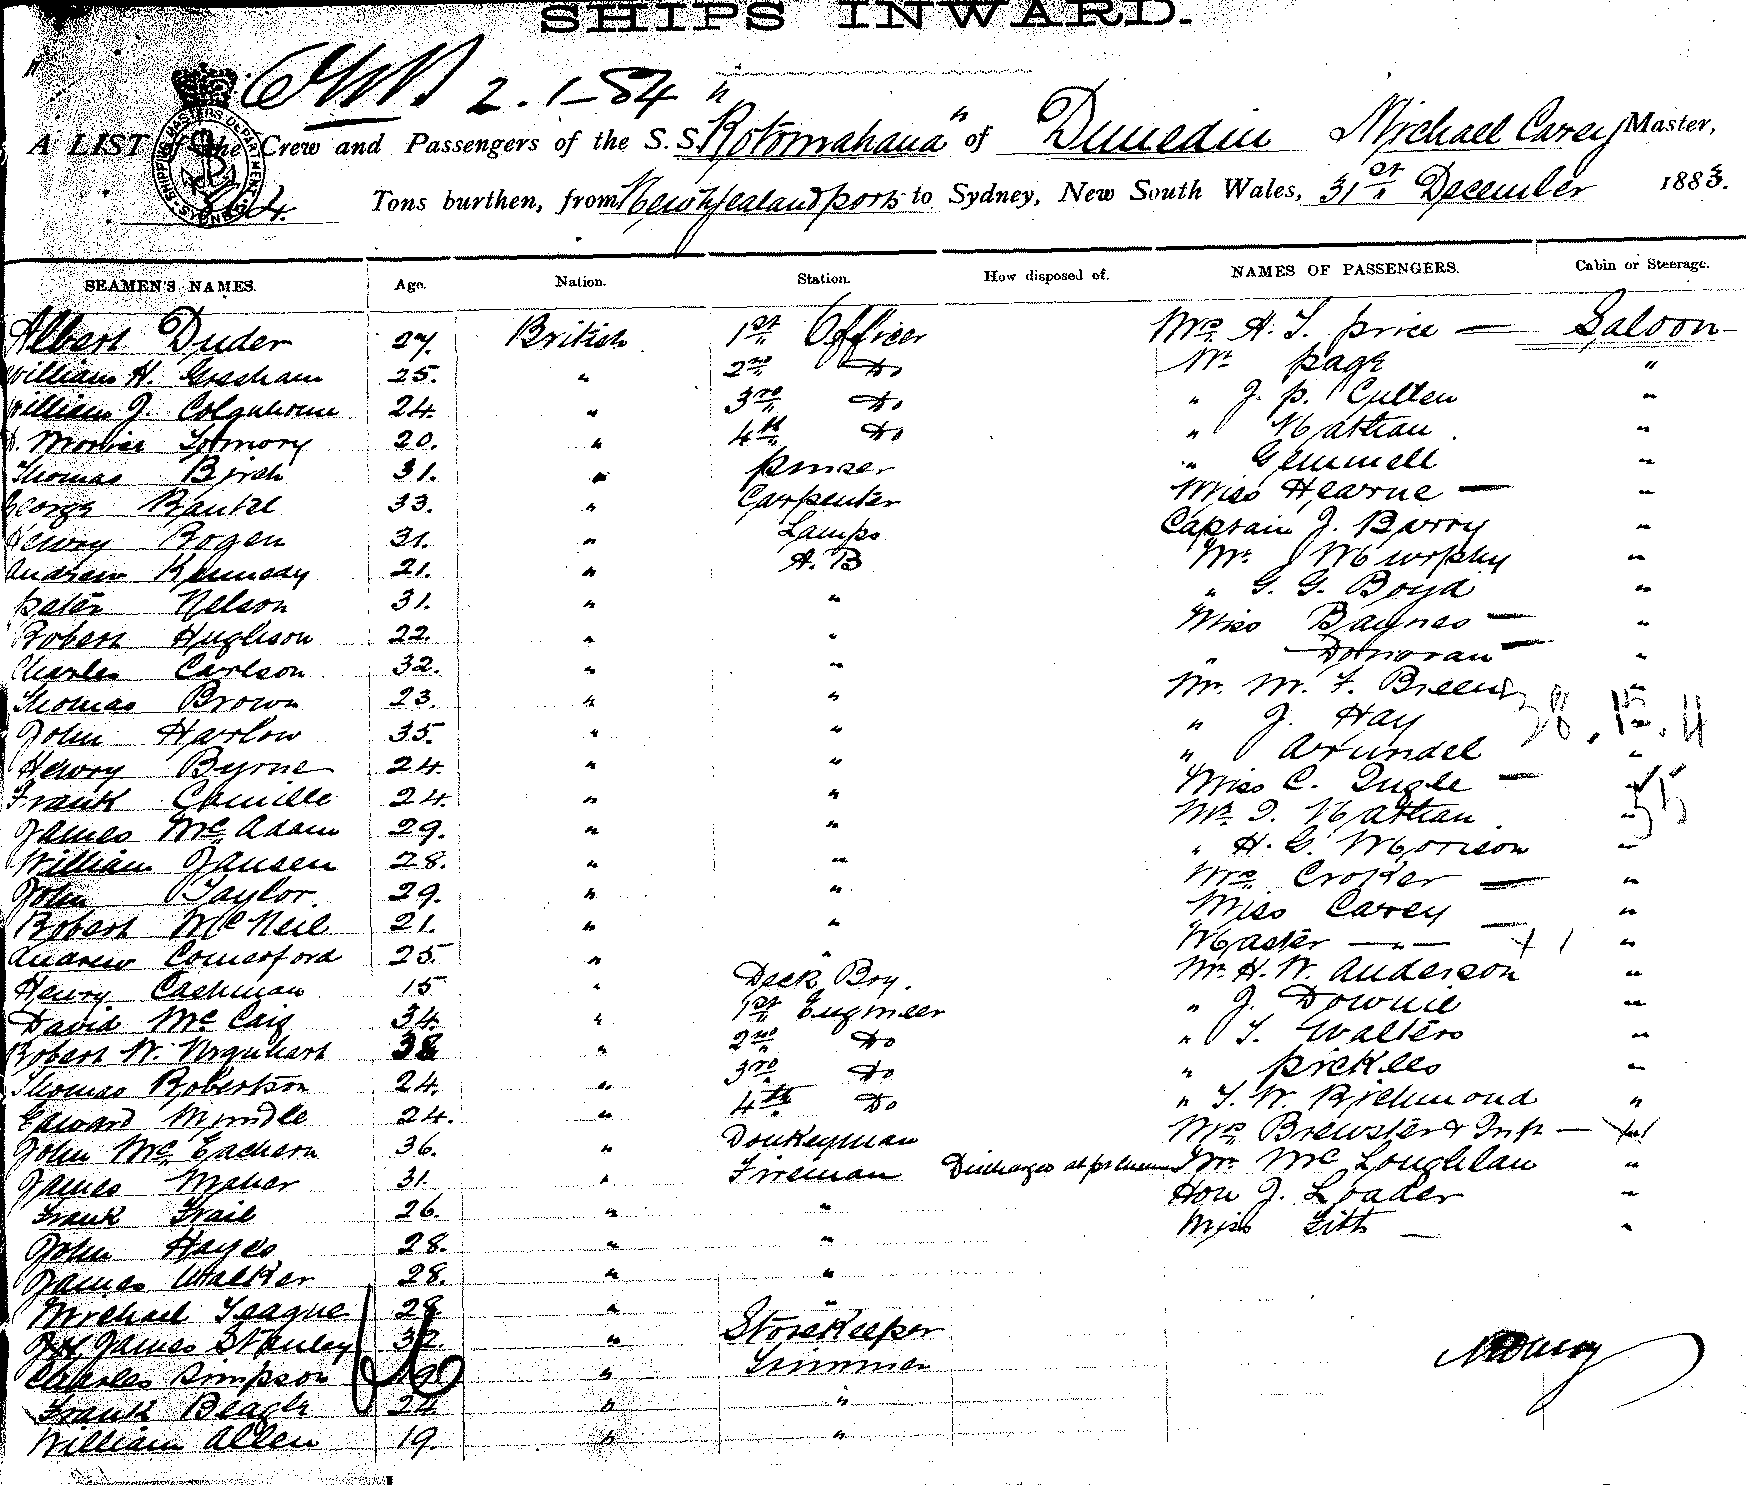 SHIPS INWARD.
2.1-84
A LIST of the Crew and Passengers of the S.S. "Rotomahana" of Dunedin Michael Carey Master,
864 Tons burthen, from New Zealand ports to Sydney, New South Wales, 31st December 1883.
SEAMEN'S NAMES. Age. Nation. Station. How disposed of. NAMES OF PASSENGERS. Cabin or Steerage.
Albert Duder 27. British 1st Officer Mrs H. T. Price — Saloon
William H. Gresham 25. " 2nd Do Mr Page "
William J. Colquhoun 24. " 3rd Do " J. P. Cullen "
20. " 4th Do " Nathan "
Thomas Birch 31. " Purser " Gemmell "
George 33. " Carpenter Miss Hearne — "
Henry Rogen 31. " Lamps Captain J. Barry "
Andrew Kennedy 21. " A.B Mr Murphy "
Peter Nelson 31. " " " G. G. Boyd "
Robert Hughson 22. " " Miss Baynes — "
Charles Carlson 32. " " " Donovan — "
Thomas Brown 23. " " Mr M. F. Breen "
John Harlow 35. " " " J. Hay " 38.15.11
Henry Byrne 24. " " " Arundel "
Frank Camille 24. " " Miss C. — "
James McAdam 29. " " Mr Nathan "
William Jansen 28. " " " H. G. Morison "
John Taylor. 29. " " Mrs Croker — "
Robert McNeil 21. " " Miss Carey — "
Andrew Comerford 25. " " Master — " — "
Henry Cashman 15 " Deck Boy. Mr H. W. Anderson "
David McCaig 34. " 1st Engineer " J. Downie "
Robert W. Urquhart 38 " 2nd Do " T. Walters "
Thomas Robertson 24. " 3rd Do " Pickles "
Edward 24. " 4th Do " T. W. Richmond "
John McEachern 36. " Donkeyman Mrs Brewster & Inft — "
James Meher 31. " Fireman Discharged at Mr McLoughlan "
Frank Frail 26. " " Hon J. Loader "
John Hayes 28. " " Miss — "
James Walker 28. " "
Michael Teague 28 " "
James Stanley 32. " Storekeeper
Charles Simpson " Trimmer
Frank Beagle 24 " "
William Allen 19. " "